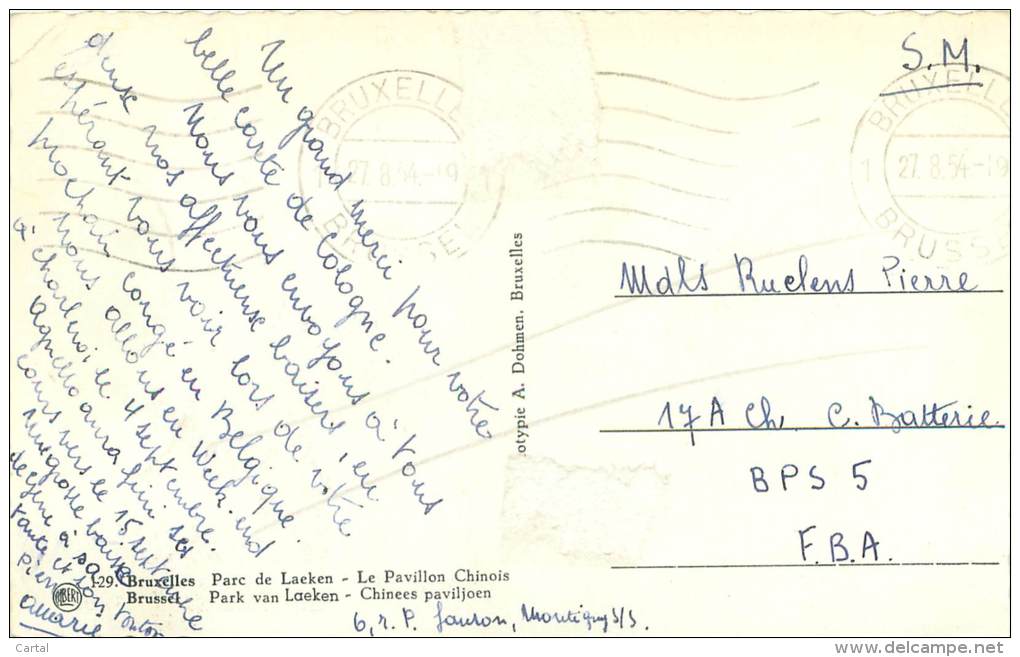 Un grand merci pour votre
belle carte de Cologne.
Nous vous envoyons à vous
deux nos affectueux baisers en
espérant vous voir lors de votre
prochain congé en Belgique.
Nous allons en Week end
à Charleroi le 4 septembre.
aura fini ses
cours vers le 15 septembre
grosse
à sa
tante et son tonton
S.M.
BRUXELLES
1 27.8.54.-19 1
BRUSSEL
BRUXELLES
1 27.8.54.-19
BRUSSEL
Mdls Ruelens Pierre
17A Ch. C. Batterie
BPS 5
F.B.A.
otypie A. Dohmen. Bruxelles
129. Bruxelles Parc de Laeken - Le Pavillon Chinois
Brussel Park van Laeken - Chinees paviljoen
ALBERT
6, r. P. Montigny s/s.
Cartal
delcampe.net